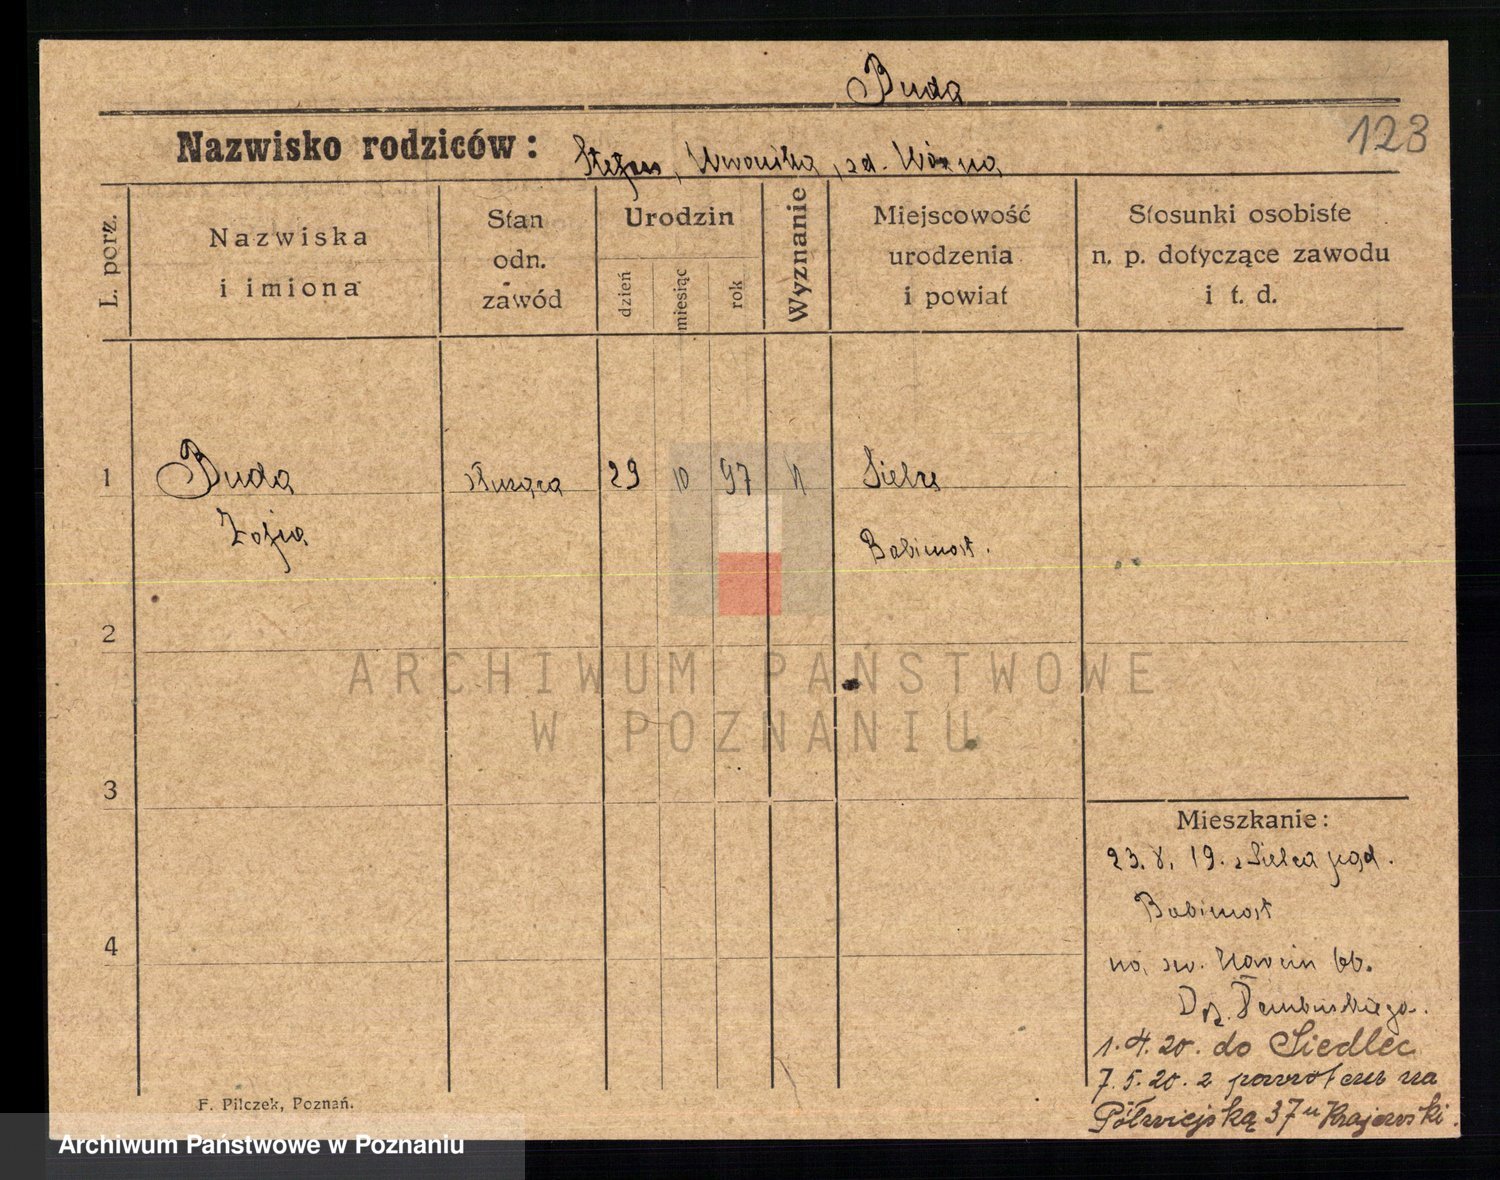 Buda
123
Nazwisko rodziców: Stefan, Weronika, zd. Woźna
L. porz.
Nazwiska
i imiona
Stan
odn.
zawód
Urodzin
dzień
miesiąc
rok
Wyznanie
Miejscowość
urodzenia
i powiat
Stosunki osobiste
n. p. dotyczące zawodu
i t. d.
1
Buda
Zofja
służąca
29
10
97
Babimost.
2
ARCHIWUM PAŃSTWOWE
W POZNANIU
3
4
Mieszkanie:
23. 8. 19. z
Babimost
na św. Marcin 66.
1. 4. 20. do Siedlec
7. 5. 20. z powrotem na
Półwiejską 37 u Krajewski.
F. Pilczek, Poznań.
Archiwum Państwowe w Poznaniu